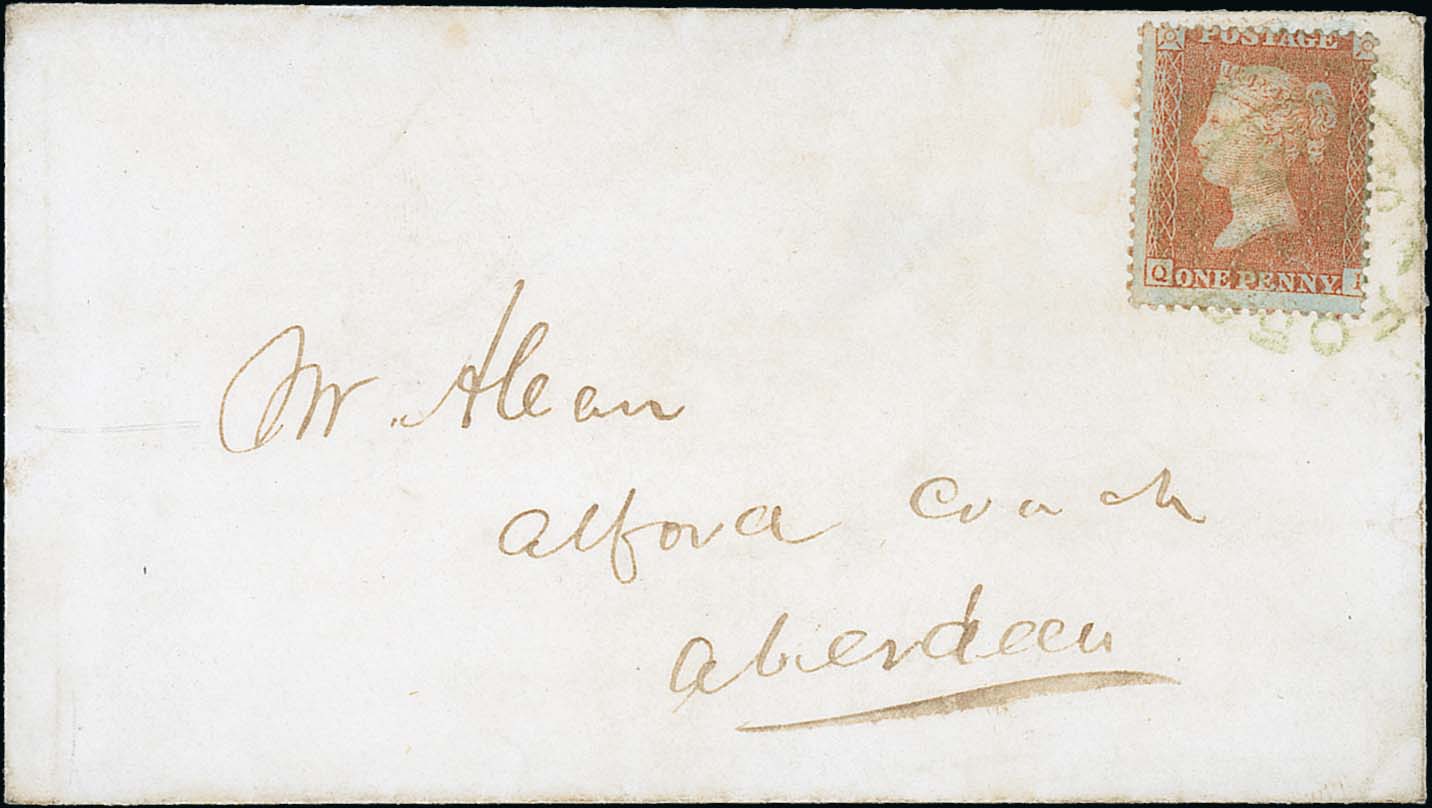 POSTAGE
Q ONE PENNY.
Mr. Alean
Alford Coach
Aberdeen